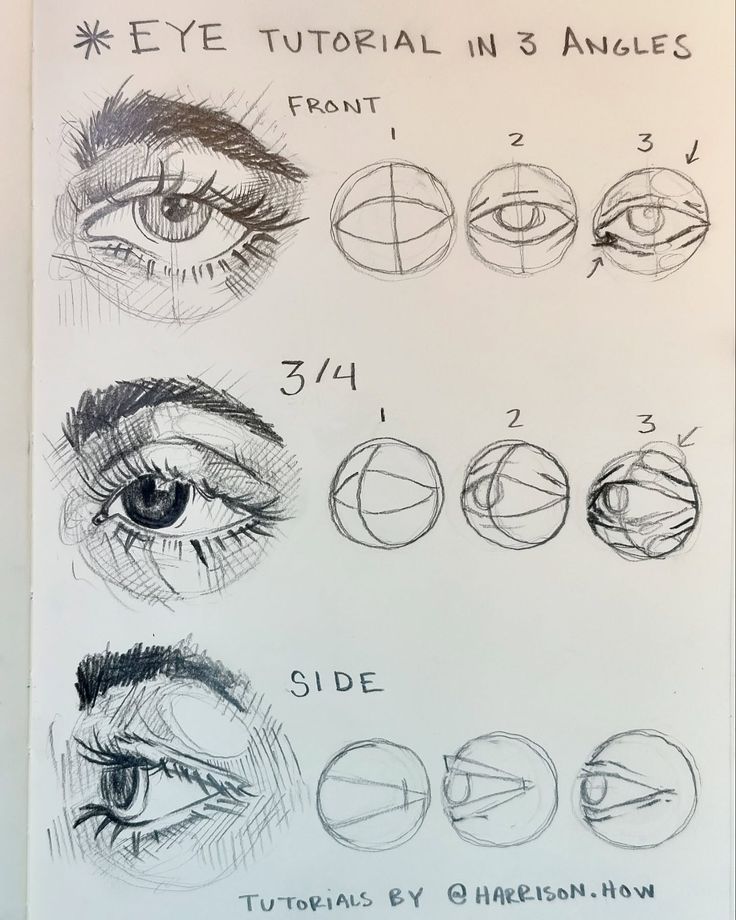 * EYE TUTORIAL IN 3 ANGLES
FRONT
1 2 3
3/4
1 2 3
SIDE
TUTORIALS BY @HARRISON.HOW